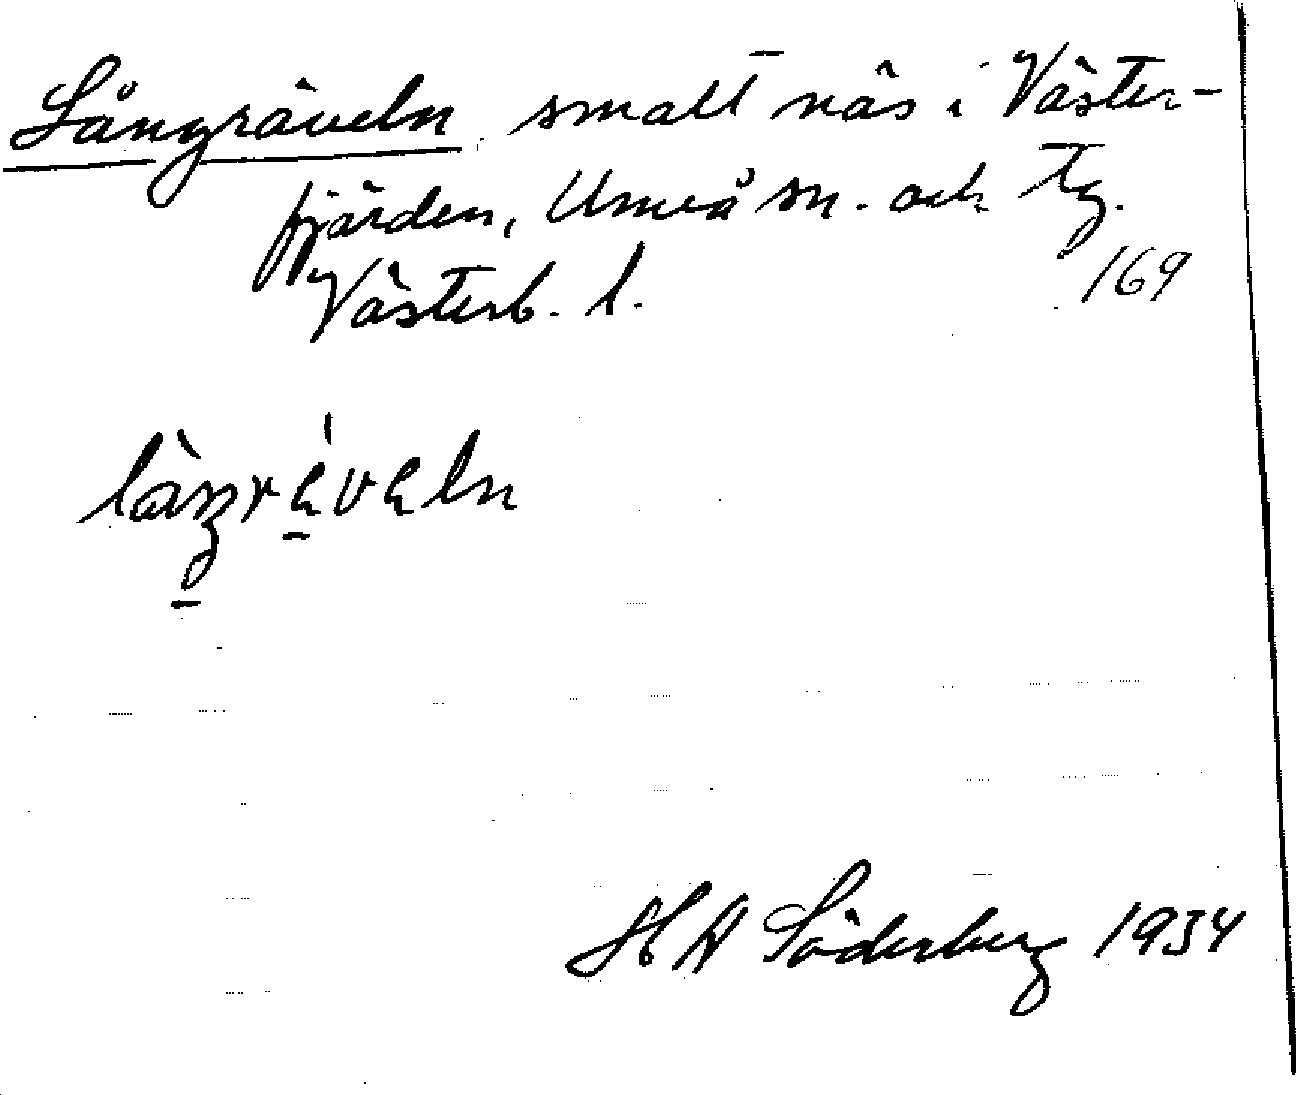 Långräveln smalt näs i Väster-
fjärden, Umeå sn. och tg.
Västerb. l. 169
HA Söderberg 1934